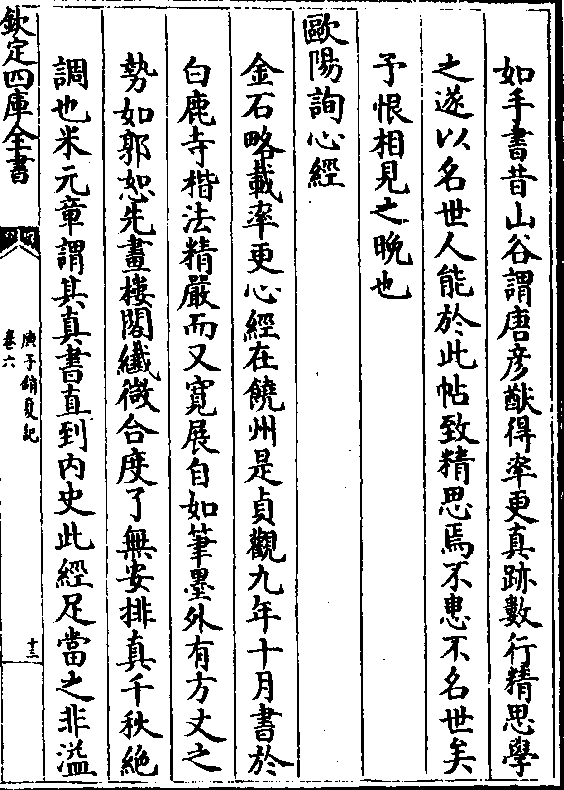 如手書昔山谷謂唐彦猷得率更真跡數行精思學
之遂以名世人能於此帖致精思焉不患不名世矣
予恨相見之晚也
歐陽詢心經
金石略載率更心經在饒州是貞觀九年十月書於
白鹿寺楷法精嚴而又寛展自如筆墨外有方丈之
勢如郭恕先畫樓閣纎微合度了無安排真千秋絶
調也米元章謂其真書直到内史此經足當之非溢
欽定四庫全書
庚子銷夏記
卷六
十三